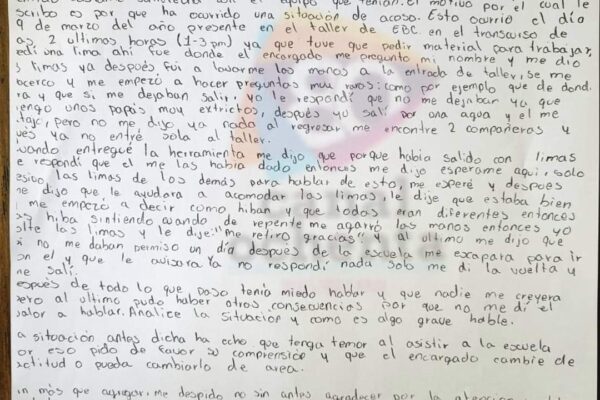 scribo es por que ha ocurrido una situación de acoso. Esto ocurrió el día
9 de marzo del año presente en el taller de EDC en el transcurso de
ultimas horas (1-3 pm) ya que tuve que pedir material para trabajar,
edi una lima ahí fue donde el encargado me pregunto mi nombre y me dio
s limas ya después fui a lavarme las manos a la entrada de taller, se me
acerco y me empezó a hacer preguntas muy raras: como por ejemplo que de dond.
ra y que si me dejaban salir, yo le respondí que no me dejaban ya que
engo unos papás muy extrictos, después yo salí por una agua y el me
pero no me dijo ya nada al regresar me encontre 2 compañeras y
ues ya no entré sola al taller.
uando entregué la herramienta me dijo que porque había salido con limas
e respondí que el me las había dado entonces me dijo esperame aqui, solo
las limas de los demás para hablar de esto, me esperé y después
me dijo que le ayudara a acomodar las limas, le dije que estaba bien
me empezó a decir como hiban y que todas eran diferentes entonces
hiba sintiendo cuando de repente me agarró las manos entonces yo
olte las limas y le dije: "me retiro gracias" y al ultimo me dijo que
i no me daban permiso un día después de la escuela me escapara para ir
on el y que le avisara Ya no respondí nada solo me di la vuelta y
me salí.
espués de todo lo que paso tenía miedo hablar y que nadie me creyera
pero al ultimo pudo haber otras consecuencias por que no me dí el
valor a hablar. Analice la situación y como es algo grave hable.
a situación antes dicha ha echo que tenga temor al asistir a la escuela
or eso pido de favor su comprensión y que el encargado cambie de
actitud o pueda cambiarlo de area.
in más que agregar, me despido no sin antes agradecer por la atención